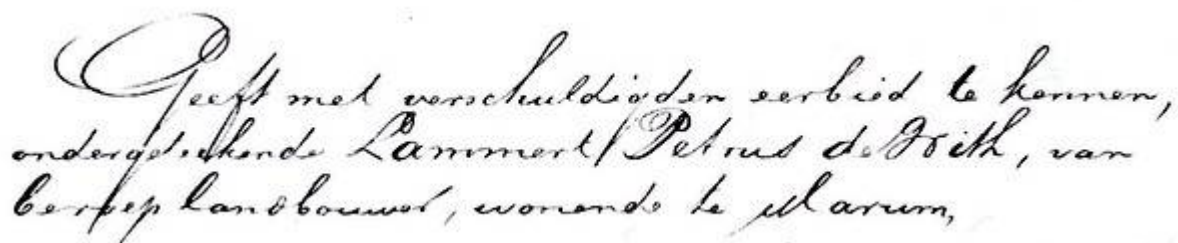 Geeft met verschuldigden eerbied te kennen,
ondergeteekende Lammert Petrus de With, van
beroep landbouwer, wonende te Marum,